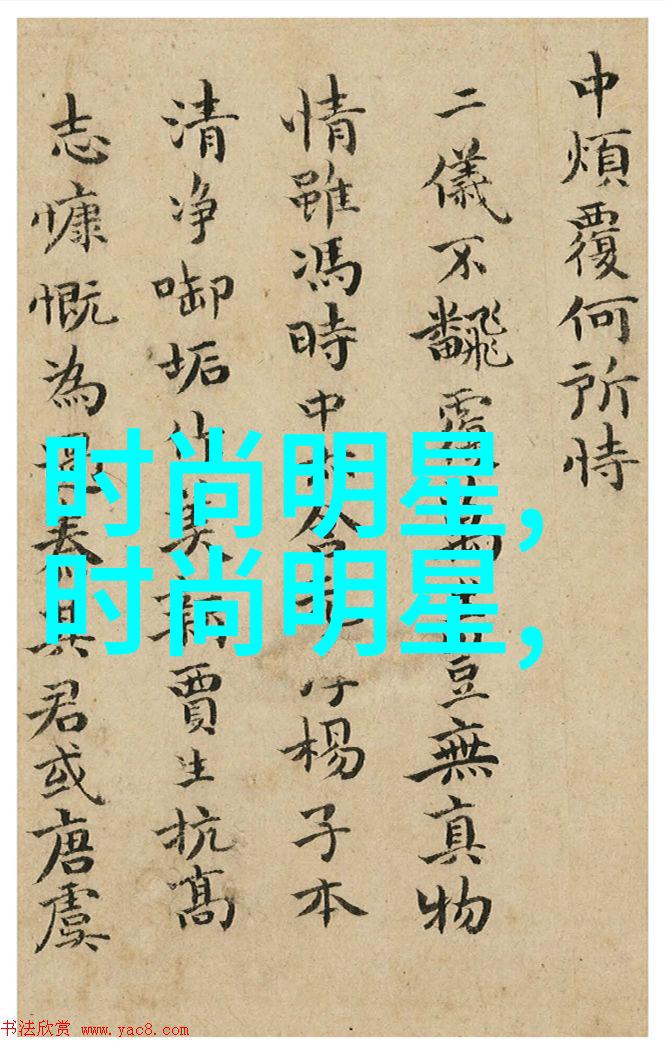 中煩覆何所恃
二儀不飜覆萬豈無真物
情雖馮時中楊子本
清净啣垢賈生抗髙
志慷慨為君或唐虞
时尚明星,
时尚明星,
书法欣赏 www.yac8.com